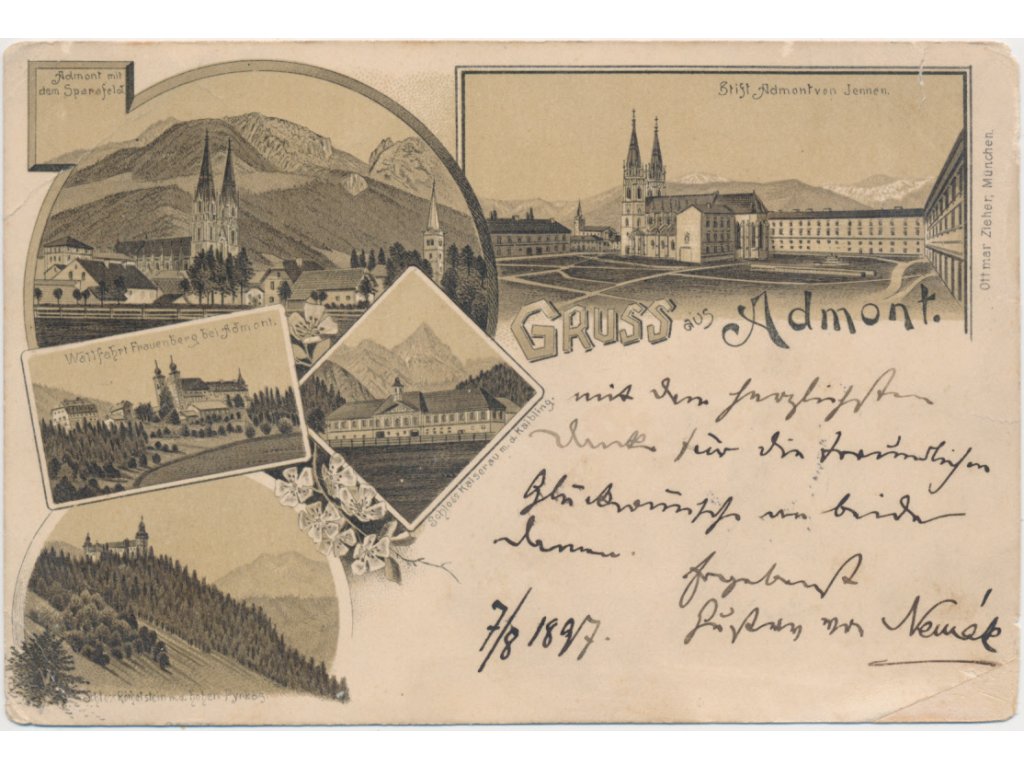 Admont mit
dem Sparafeld.
Stift Admont von Jennen.
Ottmar Zieher, München.
GRUSS aus Admont.
Wallfahrt Frauenberg bei Admont.
Schloss Kaiserau m. d. Kaibling.
Röthelstein m. d. hohen Pyrgas
mit dem herzlichsten
Danke für die freundlichen
Glückwünsche an beide
Damen.
Ergebenst
Gustav von Nemák
7/8 1897.